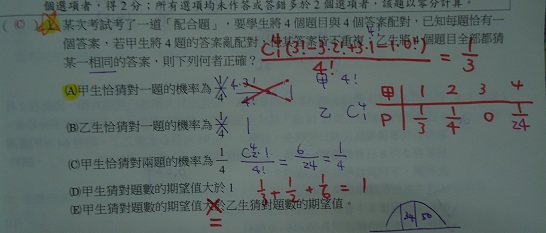 個選項者，得2分；所有選項均未作答或答錯多於2個選項者，該題以零分計算。
某次考試考了一道「配合題」，要學生將4個題目與4個答案配對，已知每題恰有一
個答案，若甲生將4題的答案亂配對，
乙生將4個題目全部都猜
某一相同的答案，則下列何者正確？
C⁴₁(3!-3·2!+3·1-1·0!) / 4! = 1/3
(A)甲生恰猜對一題的機率為 1/4
甲 4!
甲 1 2 3 4
(B)乙生恰猜對一題的機率為 1/4 1
乙 C⁴₁
P 1/3 1/4 0 1/24
(C)甲生恰猜對兩題的機率為 1/4 C⁴₂·1 / 4! = 6/24 = 1/4
(D)甲生猜對題數的期望值大於1 1/3 + 1/2 + 1/6 = 1
(E)甲生猜對題數的期望值大於乙生猜對題數的期望值。
=
34 50